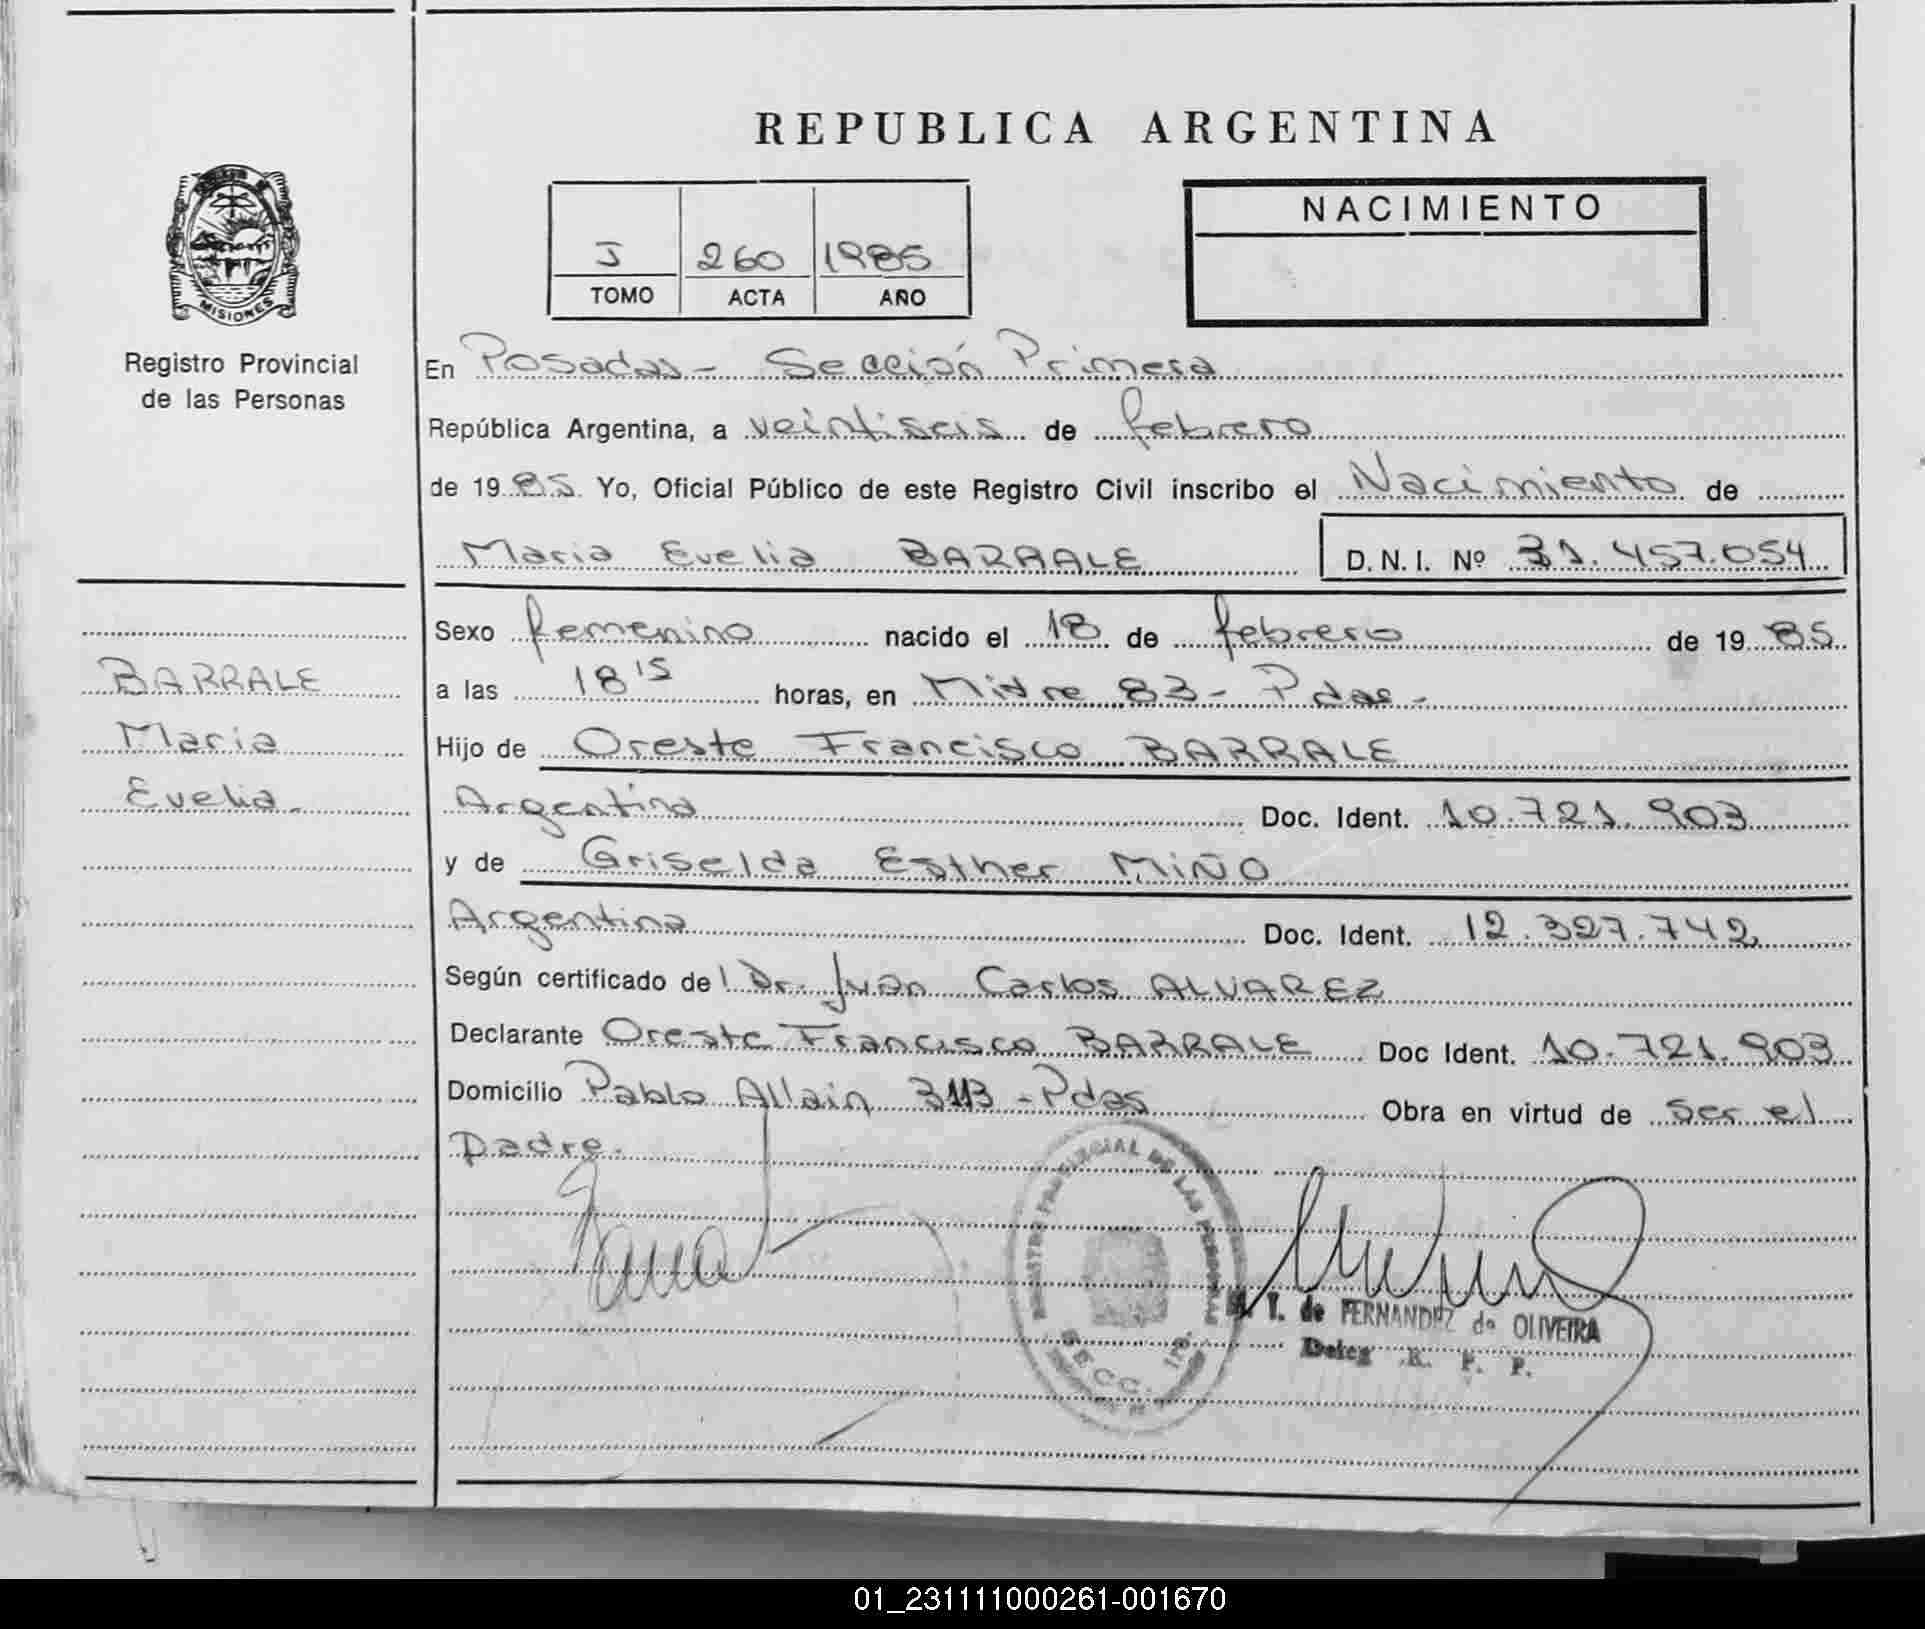 REPUBLICA ARGENTINA
MISIONES
Registro Provincial
de las Personas
J 260 1985
TOMO ACTA AÑO
NACIMIENTO
En Posadas - Sección Primera
República Argentina, a veintiseis de febrero
de 1985. Yo, Oficial Público de este Registro Civil inscribo el Nacimiento de
Maria Evelia BARRALE D.N.I. Nº 31.457.054
Sexo femenino nacido el 18 de febrero de 1985
a las 18 15 horas, en Mitre 83 - Pdas -
Hijo de Oreste Francisco BARRALE
Argentina Doc. Ident. 10.721.903
y de Griselda Esther MIÑO
Argentina Doc. Ident. 12.327.742
Según certificado del Dr. Juan Carlos ALVAREZ
Declarante Oreste Francisco BARRALE Doc Ident. 10.721.903
Domicilio Pablo Allain 3113 - Pdas Obra en virtud de ser el
padre.
BARRALE
Maria
Evelia -
REGISTRO PROVINCIAL DE LAS PERSONAS
SECC. 1ra.
T. de FERNANDEZ de OLIVEIRA
Deleg R. P. P.
01_231111000261-001670